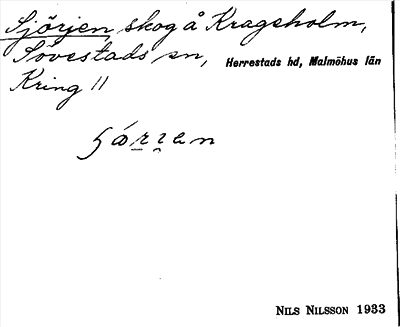 Sjörjen, skog å Kragsholm,
Sövestads sn, Herrestads hd, Malmöhus län
Kring 11
NILS NILSSON 1933